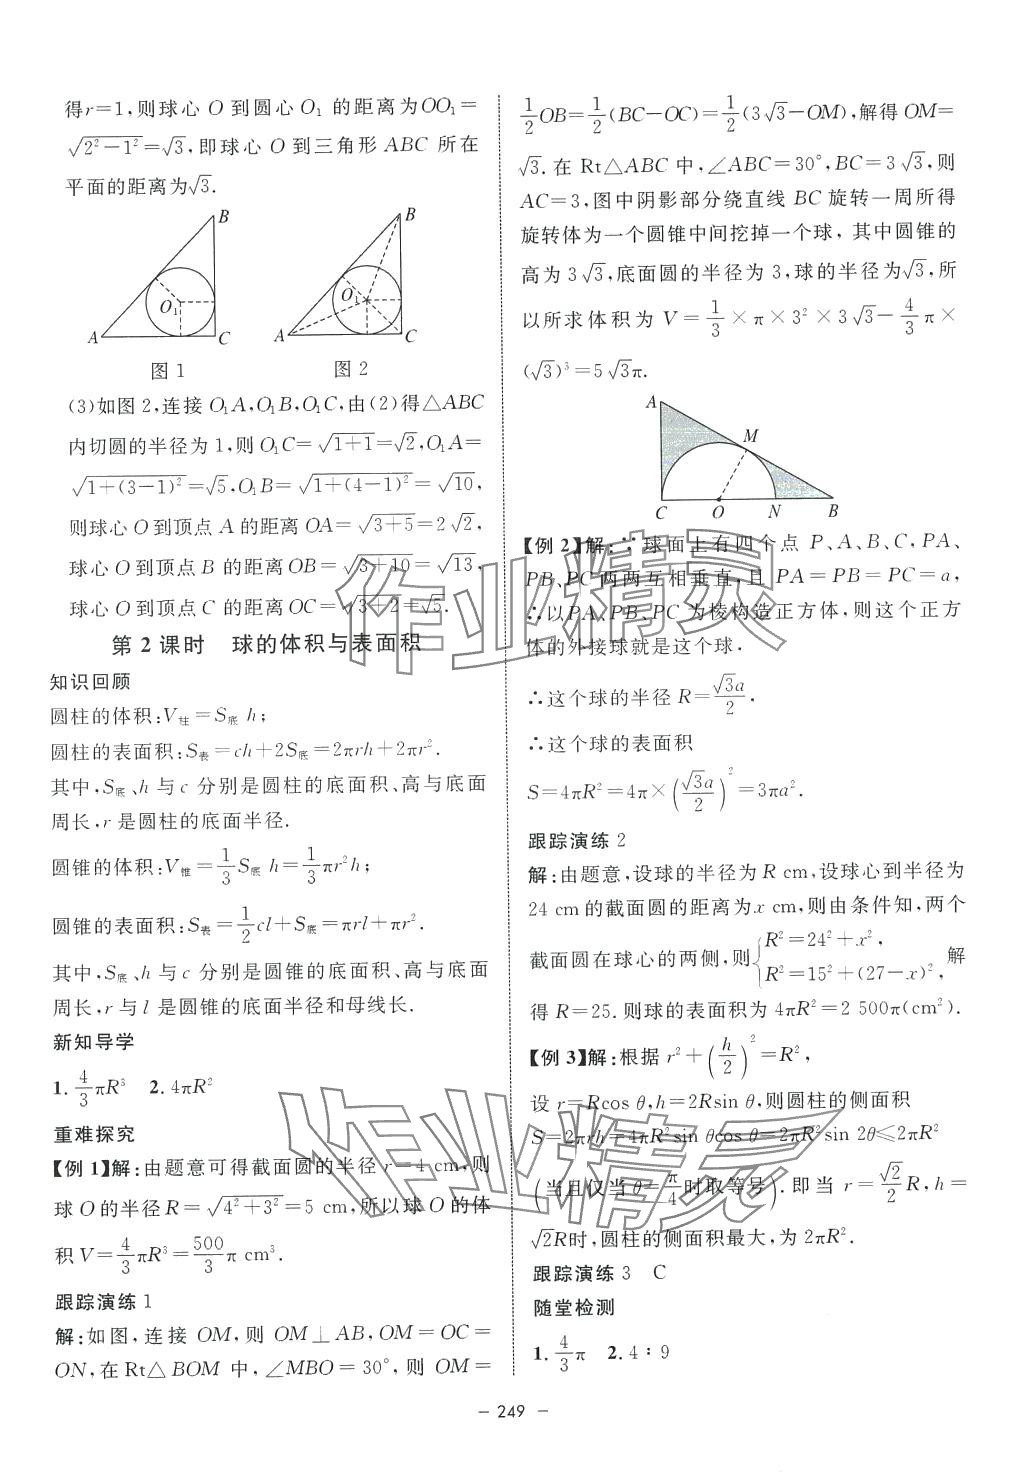 得r=1,则球心 O 到圆心 O₁ 的距离为OO₁=
√(2²-1²)=√3,即球心 O 到三角形 ABC 所在
平面的距离为√3.
B
O₁
A
C
图 1
B
O₁
A
C
图 2
(3)如图 2,连接 O₁A,O₁B,O₁C,由(2)得△ABC
内切圆的半径为 1,则 O₁C=√(1+1)=√2,O₁A=
√(1+(3-1)²)=√5,O₁B=√(1+(4-1)²)=√10,
则球心 O 到顶点 A 的距离 OA=√(3+5)=2√2,
球心 O 到顶点 B 的距离OB=√(3+10)=√13,
球心 O 到顶点 C 的距离 OC=√(3+2)=√5.
第 2 课时 球的体积与表面积
知识回顾
圆柱的体积:V柱=S底 h;
圆柱的表面积:S表=ch+2S底=2πrh+2πr².
其中,S底、h 与 c 分别是圆柱的底面积、高与底面
周长,r 是圆柱的底面半径.
圆锥的体积:V锥=1/3 S底 h=1/3 πr²h;
圆锥的表面积:S表=1/2 cl+S底=πrl+πr².
其中,S底、h 与 c 分别是圆锥的底面积、高与底面
周长,r 与 l 是圆锥的底面半径和母线长.
新知导学
1. 4/3 πR³ 2. 4πR²
重难探究
【例 1】解:由题意可得截面圆的半径 r=4 cm,则
球 O 的半径 R=√(4²+3²)=5 cm,所以球 O 的体
积 V=4/3 πR³=500/3 π cm³.
跟踪演练 1
解:如图,连接 OM,则 OM⊥AB,OM=OC=
ON,在Rt△BOM 中,∠MBO=30°,则 OM=
1/2 OB=1/2 (BC-OC)=1/2 (3√3-OM),解得 OM=
√3.在 Rt△ABC 中,∠ABC=30°,BC=3√3,则
AC=3,图中阴影部分绕直线 BC 旋转一周所得
旋转体为一个圆锥中间挖掉一个球,其中圆锥的
高为 3√3,底面圆的半径为 3,球的半径为√3,所
以所求体积为 V=1/3×π×3²×3√3-4/3 π×
(√3)³=5√3π.
A
M
C
O
N
B
【例 2】解:∵球面上有四个点 P、A、B、C,PA、
PB、PC 两两互相垂直,且 PA=PB=PC=a,
∴以PA、PB、PC 为棱构造正方体,则这个正方
体的外接球就是这个球.
∴这个球的半径 R=√3a/2.
∴这个球的表面积
S=4πR²=4π×(√3a/2)²=3πa².
跟踪演练 2
解:由题意,设球的半径为 R cm,设球心到半径为
24 cm的截面圆的距离为x cm,则由条件知,两个
截面圆在球心的两侧,则{R²=24²+x², R²=15²+(27-x)²,解
得 R=25.则球的表面积为 4πR²=2 500π(cm²).
【例 3】解:根据 r²+(h/2)²=R²,
设 r=Rcos θ,h=2Rsin θ,则圆柱的侧面积
S=2πrh=4πR²sin θcos θ=2πR²sin 2θ≤2πR²
(当且仅当 θ=π/4 时取等号).即当 r=√2/2 R,h=
√2R时,圆柱的侧面积最大,为 2πR².
跟踪演练 3 C
随堂检测
1. 4/3 π 2. 4∶9
- 249 -
作业精灵
作业精灵